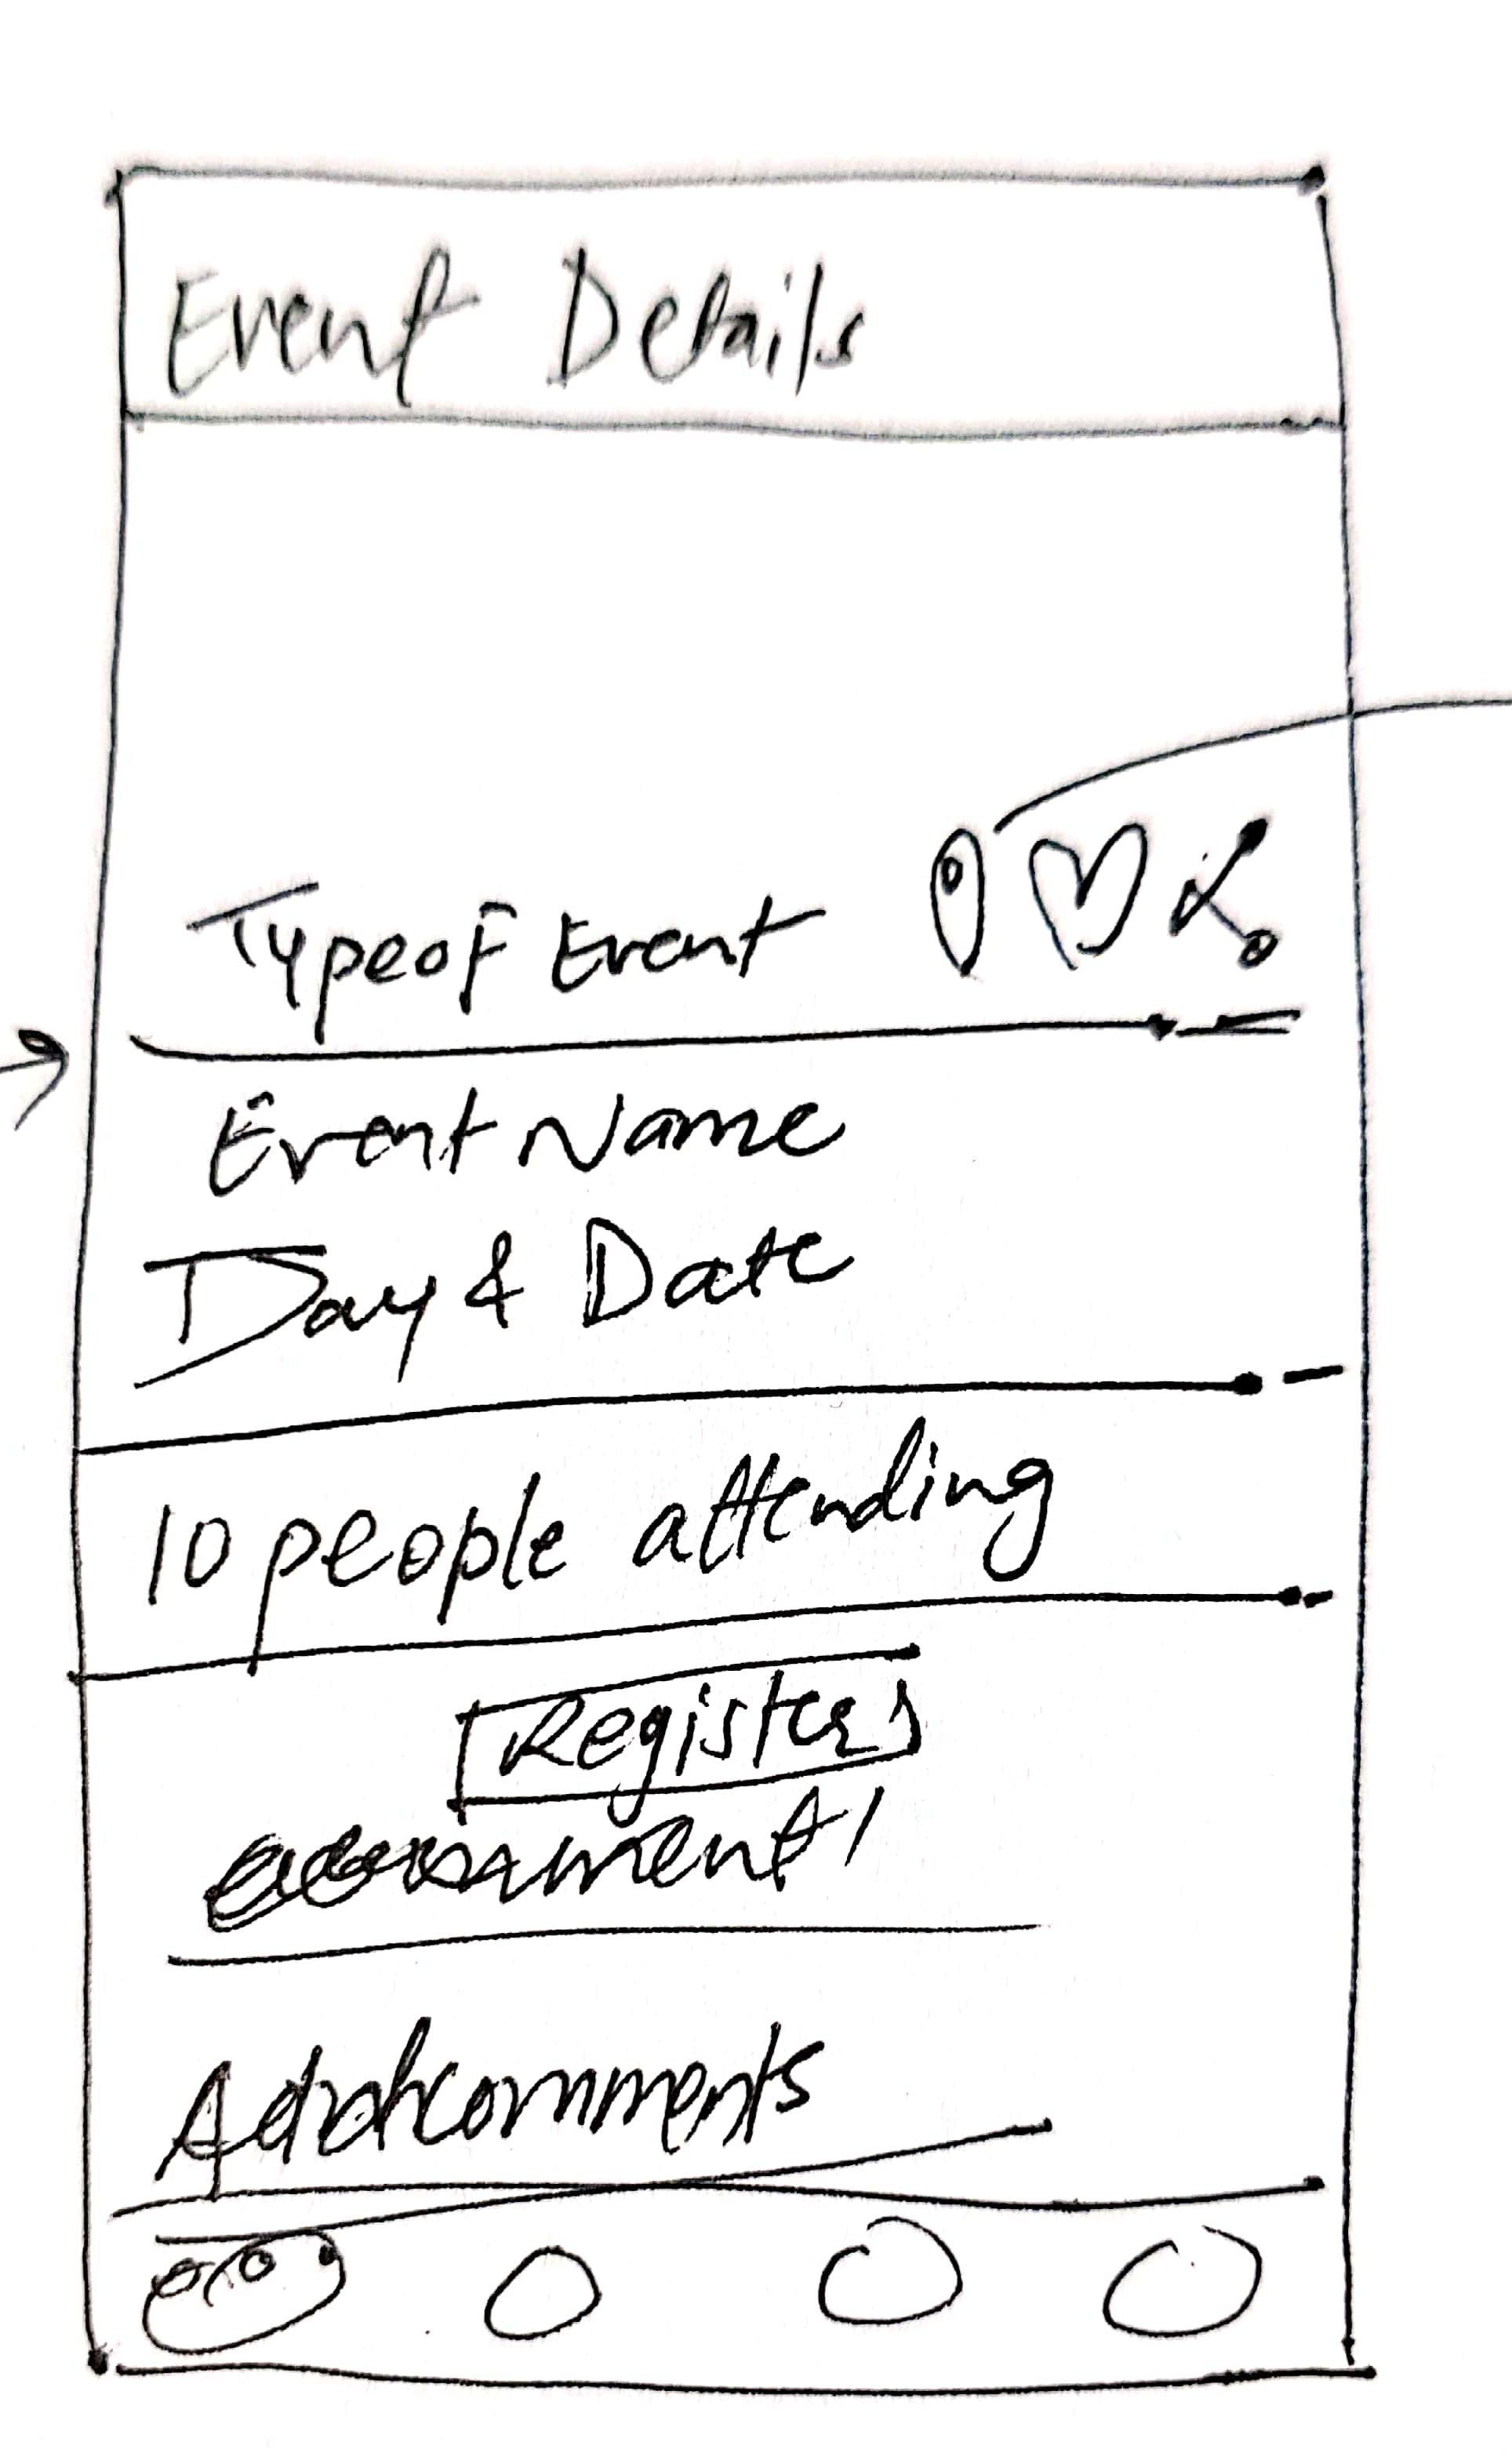 Event Details
Type of Event
Event Name
Day & Date
10 people attending
Register
Add comments